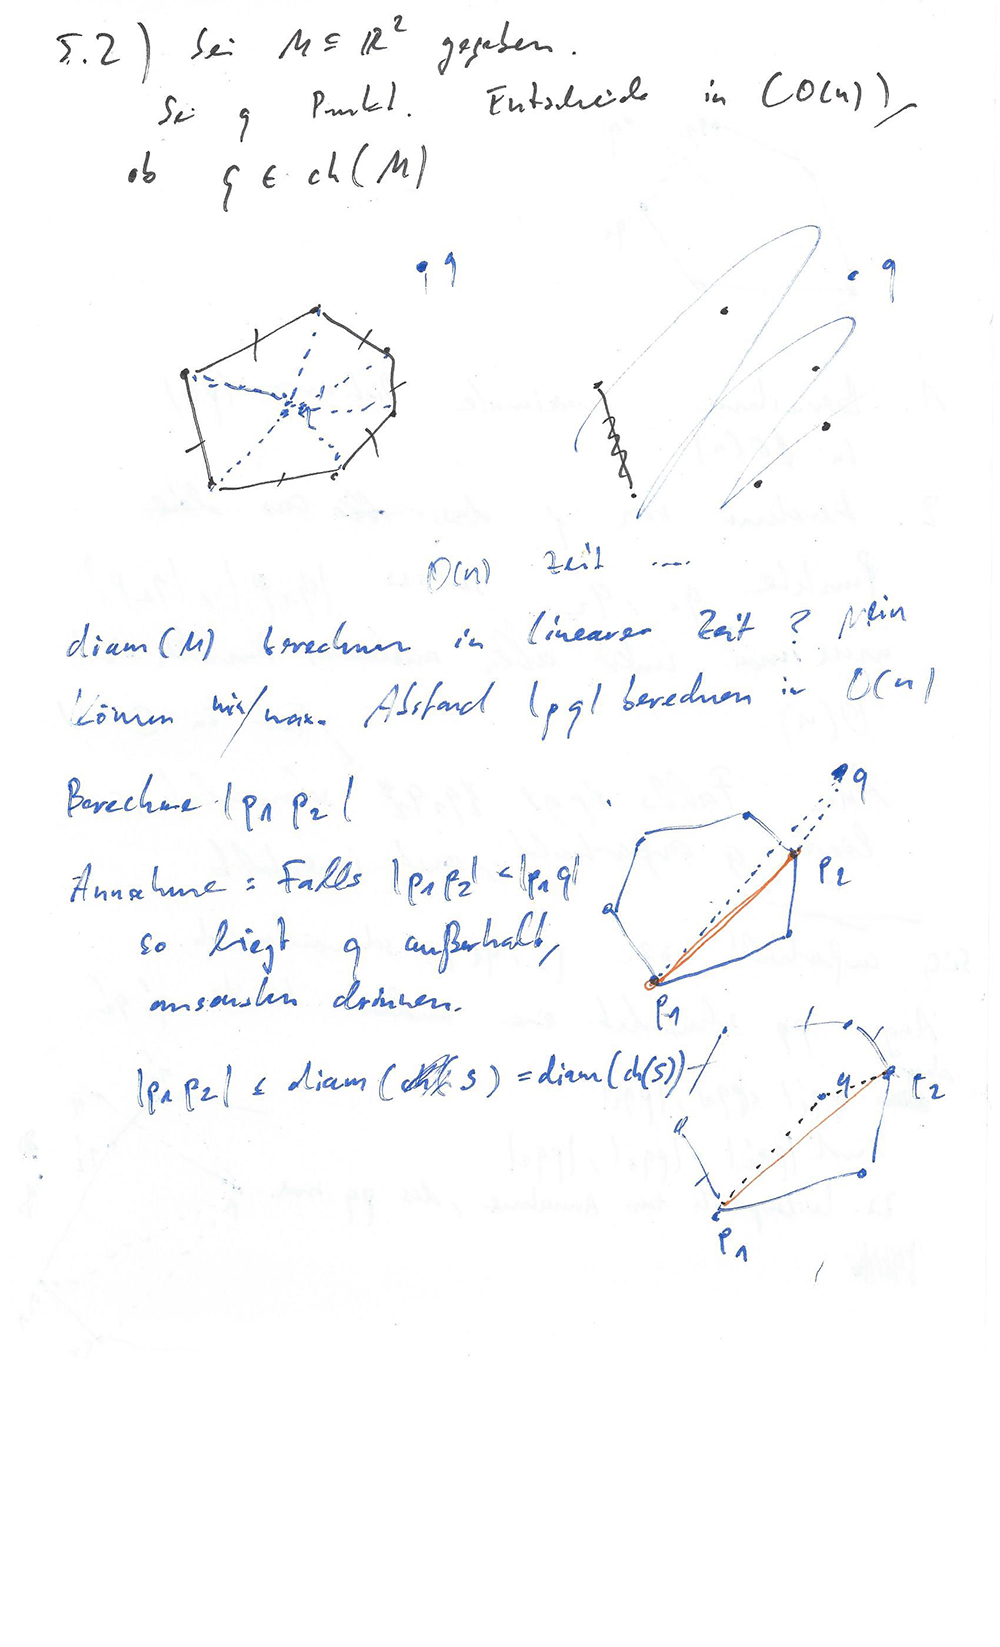 5.2) Sei M ⊆ ℝ² gegeben.
Sei q Punkt. Entscheide in (O(n)),
ob q ∈ ch(M)
q
q
q
O(n) Zeit ....
diam(M) berechnen in linearer Zeit? Nein
Können min/max. Abstand |pq| berechnen in O(n)
Berechne |p1 p2|
q
p2
p1
Annahme: Falls |p1p2| < |p1q|
so liegt q außerhalb,
ansonsten drinnen.
|p1 p2| ≤ diam(S) = diam(ch(S))
q
p2
p1